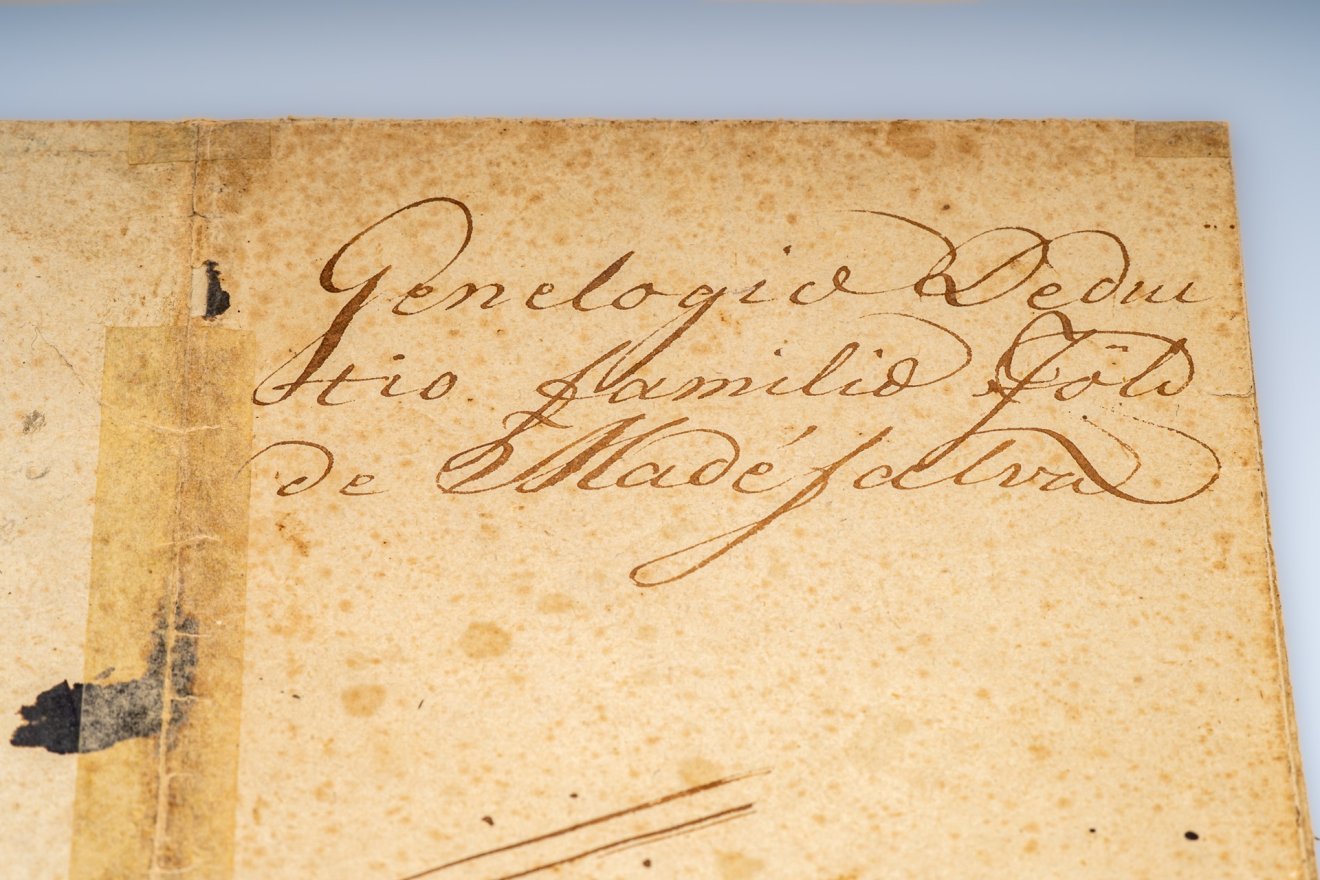 Genelogiæ Deduc
tio familiæ Föld
de Madéfalva